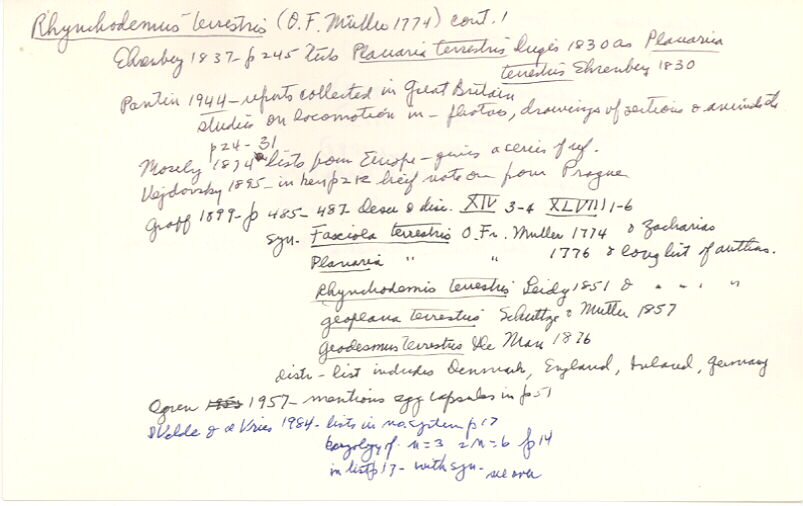 Rhynchodemus terrestris (O.F. Müller 1774) cont.!
Ehrenberg 1837- p 245 lists Planaria terrestris Dugès 1830 as Planaria
terrestris Ehrenberg 1830
Pantin 1944 - reports collected in Great Britain
studies on locomotion in - photos, drawings of sections &
p24-31
Mosely 1874 lists from Europe - gives a series of ref.
Vejdovsky 1895 - in key p2 brief note on from Prague
Graff 1899- p 485-487 Desc & disc. XIV 3-4 XLVIII 1-6
syn. Fasciola terrestris O.Fr. Muller 1774 & Zacharias
Planaria " " 1776 & long list of authors.
Rhynchodemus terrestris Leidy 1851 & " " , "
Geoplana terrestris Schultze & Muller 1857
Geodesmus terrestris De Man 1876
distr - list includes Denmark, England, Ireland, Germany
Ogren 1957 - mentions egg capsules in p 51
& de Vries 1984 - lists in p 17
karyology of n=3 2n=6 p 14
in list p 17 - with syn. - see over